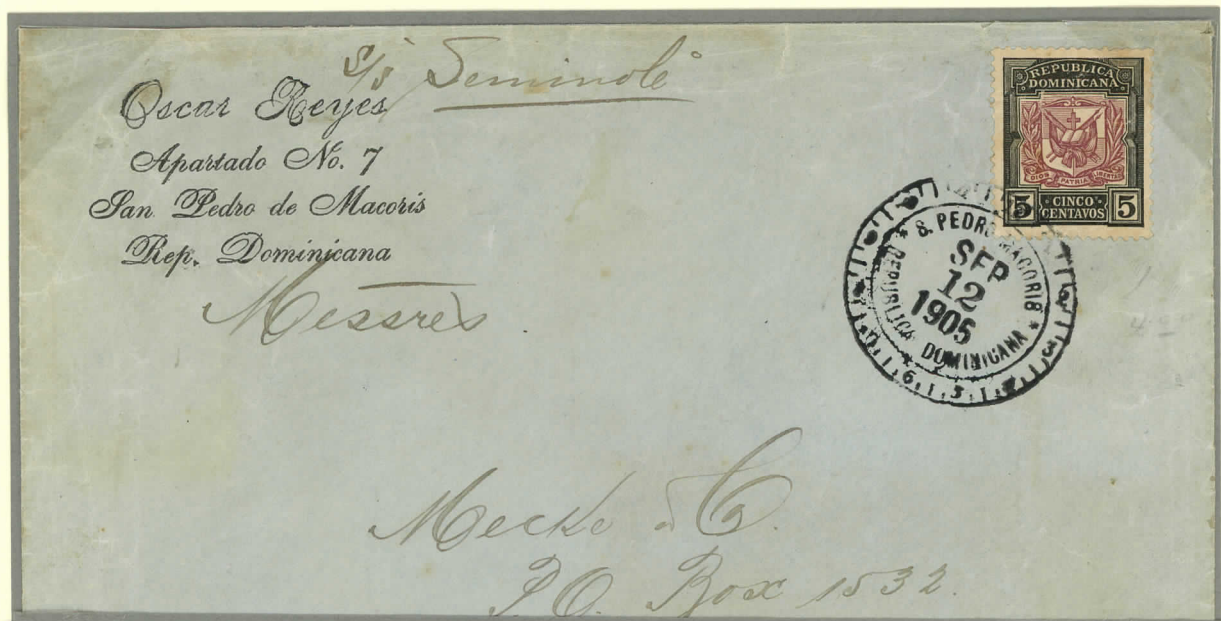 S/S Seminole
Oscar Reyes
Apartado No. 7
San Pedro de Macoris
Rep. Dominicana
REPUBLICA
DOMINICANA
DIOS PATRIA LIBERTAD
5 CINCO CENTAVOS 5
S. PEDRO MACORIS
SEP
12
1905
REPUBLICA DOMINICANA
Messres
Mecke & Co.
P.O. Box 1532.